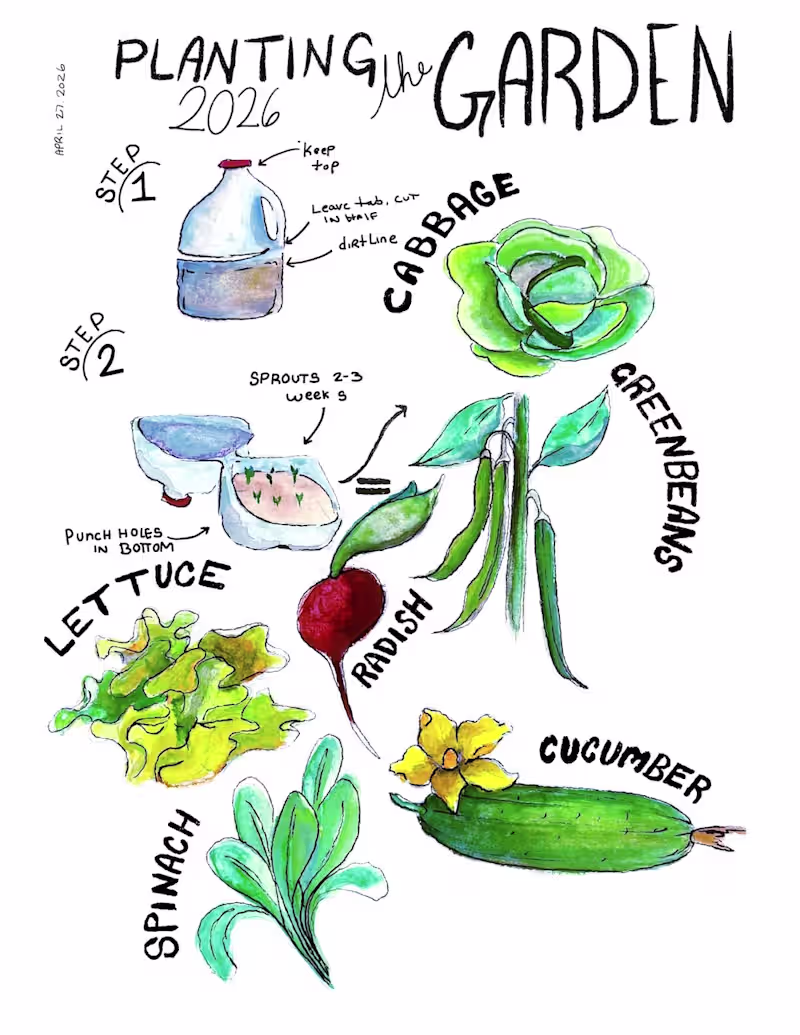 APRIL 27. 2026
PLANTING the GARDEN
2026
STEP
1
Keep
top
Leave tab, CUT
IN HALF
dirtLine
CABBAGE
STEP
2
SPROUTS 2-3
weeks
=
PUNCH HOLES
IN BOTTOM
GREENBEANS
LETTUCE
RADISH
CUCUMBER
SPINACH